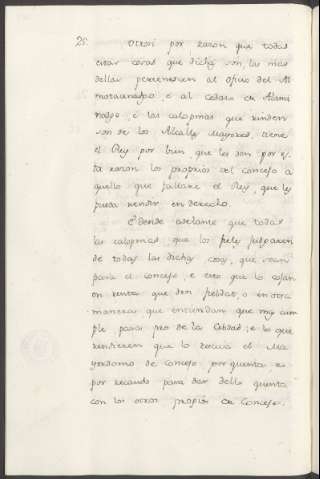 25. Otrosi por razon que todas
estas cosas que dicho son, las mas
dellas pertenescen al oficio del Al
motacenadgo, e al cosa en Alami
nadgo, e las caloñas que rinden
son de los Alcalles Mayores, tiene
el Rey por bien, que les den por es
ta razon los proprios del concejo a
quello que fallare el Rey, que les
pueda rendir en derecho.
E dende adelante que todas
las caloñas que los fieles juzgaren
de todas las dichas cosas, que sean
para el concejo, e esto que lo cojan
en renta que den fieldat, o en otra
maneras que entiendan que mas cum
ple para pro de la Cibdad; e lo que
rindieren que lo reciva el Ma
yordomo de Concejo por quenta, e
por recaudo para dar dello quenta
con los otros propios de Concejo.